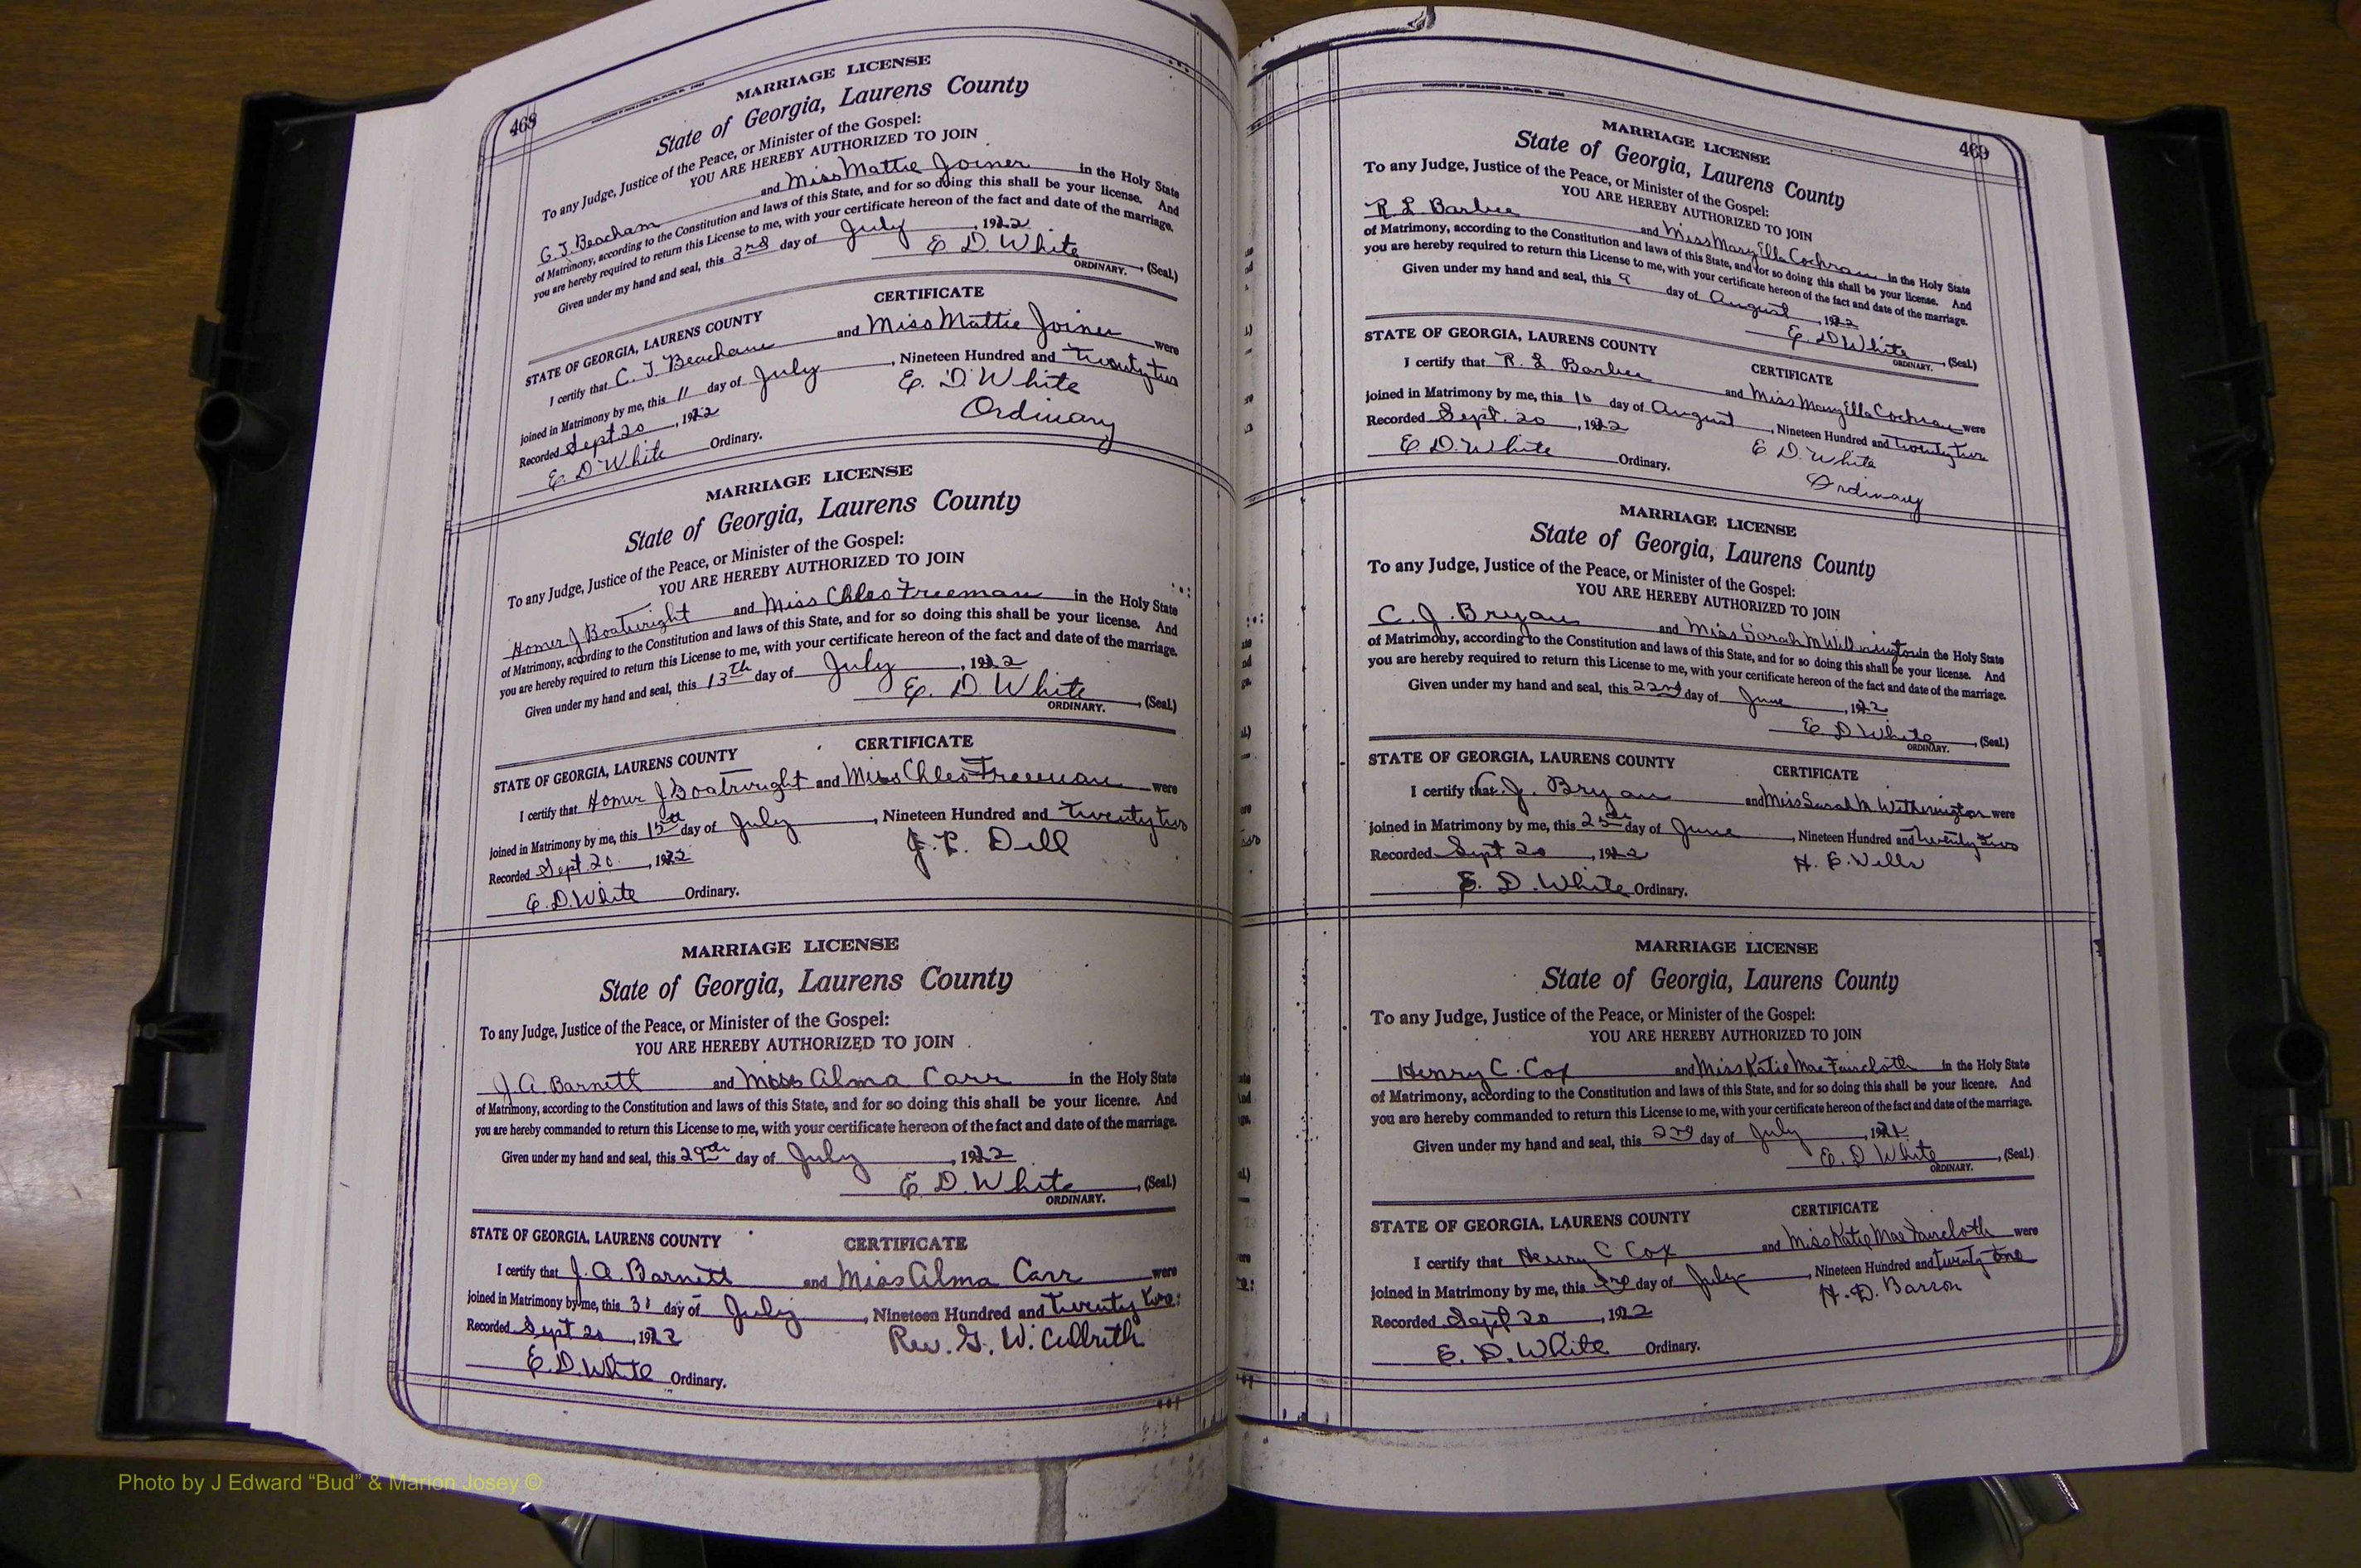 468
MARRIAGE LICENSE
State of Georgia, Laurens County
To any Judge, Justice of the Peace, or Minister of the Gospel:
YOU ARE HEREBY AUTHORIZED TO JOIN
C. J. Beacham and Miss Mattie Joiner in the Holy State
of Matrimony, according to the Constitution and laws of this State, and for so doing this shall be your license. And
you are hereby required to return this License to me, with your certificate hereon of the fact and date of the marriage.
Given under my hand and seal, this 3rd day of July, 1922
E. D. White, (Seal.)
ORDINARY.
CERTIFICATE
STATE OF GEORGIA, LAURENS COUNTY
I certify that C. J. Beacham and Miss Mattie Joiner were
joined in Matrimony by me, this 11 day of July, Nineteen Hundred and twenty two
Recorded Sept 20, 1922 E. D. White
E. D. White Ordinary. Ordinary
MARRIAGE LICENSE
State of Georgia, Laurens County
To any Judge, Justice of the Peace, or Minister of the Gospel:
YOU ARE HEREBY AUTHORIZED TO JOIN
Homer J Boatwright and Miss Chleo Freeman in the Holy State
of Matrimony, according to the Constitution and laws of this State, and for so doing this shall be your license. And
you are hereby required to return this License to me, with your certificate hereon of the fact and date of the marriage.
Given under my hand and seal, this 13th day of July, 1922
E. D. White, (Seal.)
ORDINARY.
CERTIFICATE
STATE OF GEORGIA, LAURENS COUNTY
I certify that Homer J Boatwright and Miss Chleo Freeman were
joined in Matrimony by me, this 15th day of July, Nineteen Hundred and twenty two
Recorded Sept 20, 1922 J. P. Dell
E. D. White Ordinary.
MARRIAGE LICENSE
State of Georgia, Laurens County
To any Judge, Justice of the Peace, or Minister of the Gospel:
YOU ARE HEREBY AUTHORIZED TO JOIN
J. A. Barnett and Miss Alma Carr in the Holy State
of Matrimony, according to the Constitution and laws of this State, and for so doing this shall be your license. And
you are hereby commanded to return this License to me, with your certificate hereon of the fact and date of the marriage.
Given under my hand and seal, this 29th day of July, 1922
E. D. White, (Seal.)
ORDINARY.
STATE OF GEORGIA, LAURENS COUNTY CERTIFICATE
I certify that J. A. Barnett and Miss Alma Carr were
joined in Matrimony by me, this 31 day of July, Nineteen Hundred and twenty two
Recorded Sept 20, 1922 Rev. G. W.
E. D. White Ordinary.
469
MARRIAGE LICENSE
State of Georgia, Laurens County
To any Judge, Justice of the Peace, or Minister of the Gospel:
YOU ARE HEREBY AUTHORIZED TO JOIN
R L Barbee and Miss Mary Ella Cochran in the Holy State
of Matrimony, according to the Constitution and laws of this State, and for so doing this shall be your license. And
you are hereby required to return this License to me, with your certificate hereon of the fact and date of the marriage.
Given under my hand and seal, this 9 day of August, 1922
E. D. White, (Seal.)
ORDINARY.
STATE OF GEORGIA, LAURENS COUNTY CERTIFICATE
I certify that R. L. Barbee and Miss Mary Ella Cochran were
joined in Matrimony by me, this 10 day of August, Nineteen Hundred and twenty two
Recorded Sept. 20, 1922 E. D. White
E. D. White Ordinary. Ordinary
MARRIAGE LICENSE
State of Georgia, Laurens County
To any Judge, Justice of the Peace, or Minister of the Gospel:
YOU ARE HEREBY AUTHORIZED TO JOIN
C. J. Bryan and Miss Sarah M in the Holy State
of Matrimony, according to the Constitution and laws of this State, and for so doing this shall be your license. And
you are hereby required to return this License to me, with your certificate hereon of the fact and date of the marriage.
Given under my hand and seal, this 22nd day of June, 1922
E. D. White, (Seal.)
ORDINARY.
STATE OF GEORGIA, LAURENS COUNTY CERTIFICATE
I certify that C. J. Bryan and Miss Sarah M Witherington were
joined in Matrimony by me, this 25th day of June, Nineteen Hundred and twenty two
Recorded Sept 20, 1922 H. B.
E. D. White Ordinary.
MARRIAGE LICENSE
State of Georgia, Laurens County
To any Judge, Justice of the Peace, or Minister of the Gospel:
YOU ARE HEREBY AUTHORIZED TO JOIN
Henry C. Cox and Miss Katie Mae Faircloth in the Holy State
of Matrimony, according to the Constitution and laws of this State, and for so doing this shall be your license. And
you are hereby commanded to return this License to me, with your certificate hereon of the fact and date of the marriage.
Given under my hand and seal, this 2nd day of July, 1921
E. D. White, (Seal.)
ORDINARY.
CERTIFICATE
STATE OF GEORGIA, LAURENS COUNTY
I certify that Henry C Cox and Miss Katie Mae Faircloth were
joined in Matrimony by me, this 3rd day of July, Nineteen Hundred and twenty one
Recorded Sept 20, 1922 H. D. Barron
E. D. White Ordinary.
Photo by J Edward “Bud” & Marion Josey ©